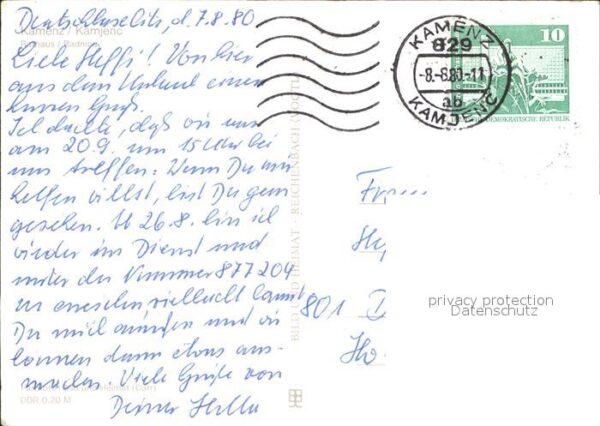 Deutschbaselitz, d. 7.8.80
Kamenz / Kamjenc
Rathaus / Radnica
Liebe Steffi! Von hier
aus dem Urlaub einen
kurzen Gruß.
Ich dachte, daß wir uns
am 20.9. um 15 Uhr bei
uns treffen. Wenn Du mir
helfen willst, bist Du gern
gesehen. Ab 26.8. bin ich
wieder im Dienst und
unter der Nummer 877204
zu erreichen vielleicht kannst
Du mich anrufen und wir
können dann etwas aus-
machen. Viele Grüße von
Deiner Hella
DDR 0,20 M
BILD UND HEIMAT · REICHENBACH (VOGTL)
KAMENZ
829
-8.-8.80-11
ab
KAMJENC
10
DEMOKRATISCHE REPUBLIK
801
privacy protection
Datenschutz